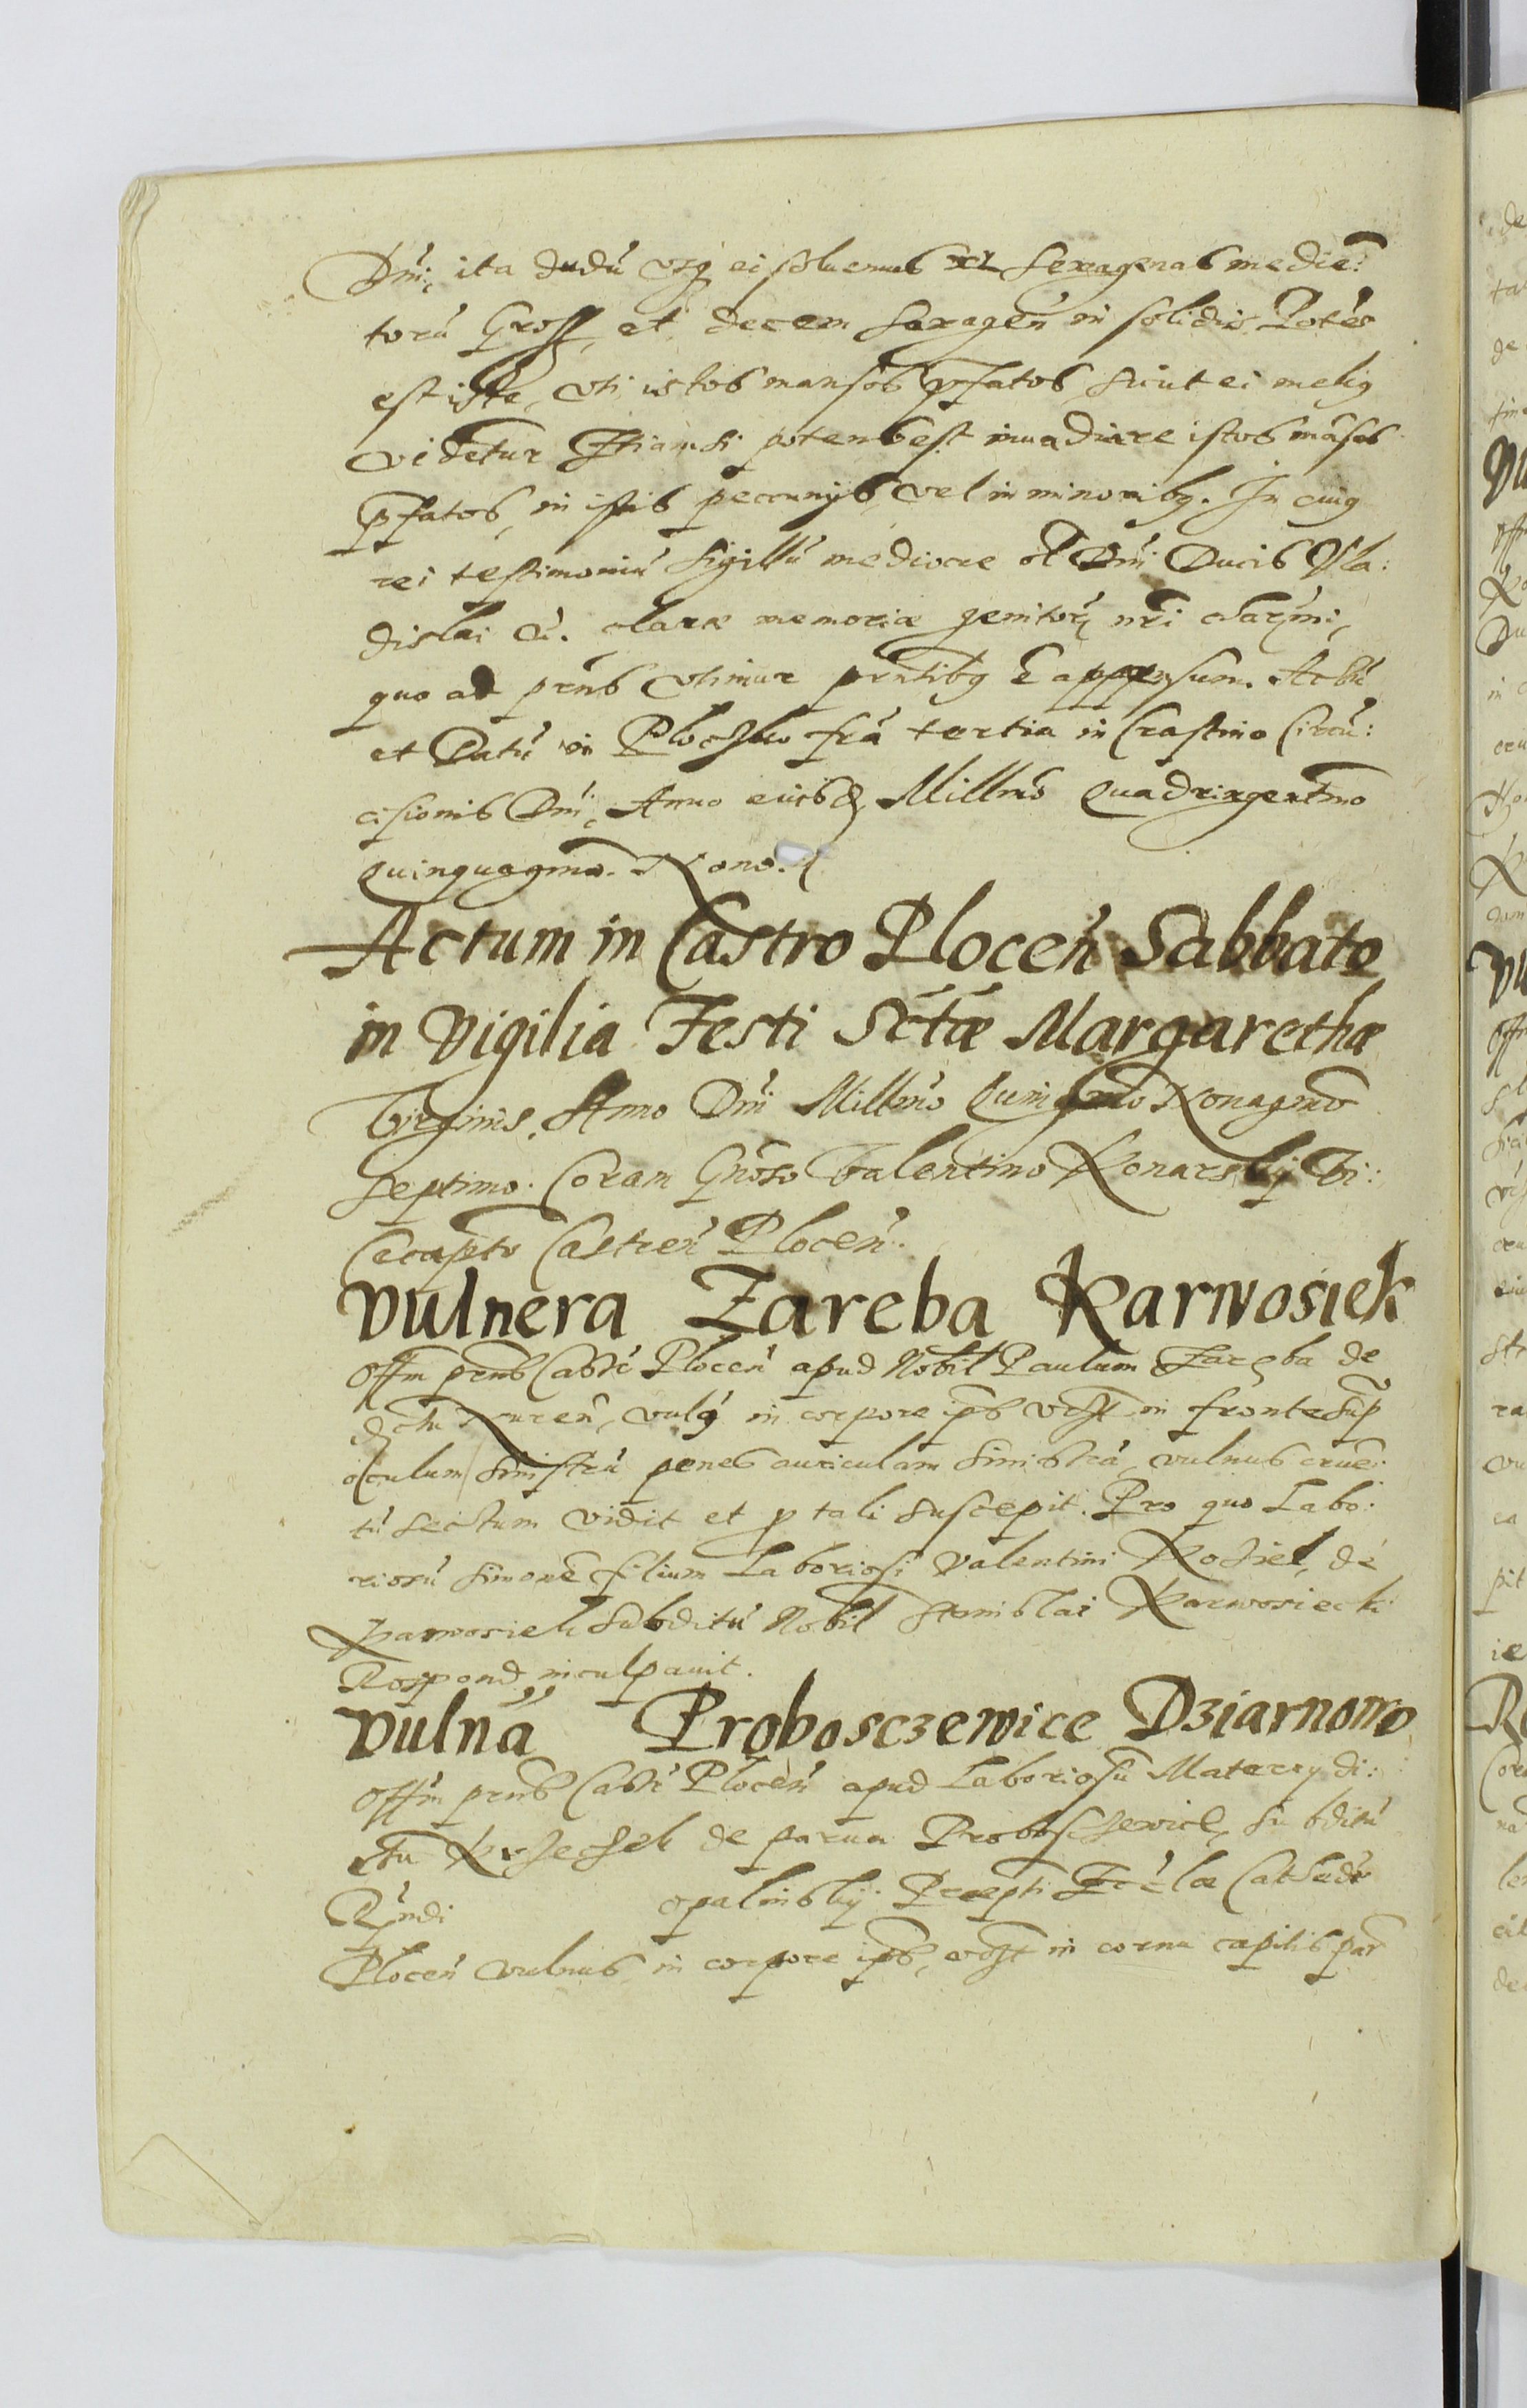 Dnı, ita dudú vsq ei soluemus XL sexagenas medie:
torú Gross, et decem sexagen in solidis Potés
est iste, vti istos mansos pfatos sicut ei melig
videtur Etiamsi potens est inuadiare istos másos
pfatos, in istis peccunijs vel in minoribg. In cuig
rei testimoniú sigillú mediocre Dnı Ducis Vla:
dislai clarae memoriae genitoris nri charmi,
quo ad pnns vtimur pntibg E appensum. Actú
et Datú in Ploczko fra tertia in Crastino Circú:
cisionis Dnı, Anno eiusd Millmo Quadringentmo
Quinquagmo. Nono.
Actum in Castro Plocen Sabbato
in Vigilia Festi Sctae Margarethae
Virginis. Anno Dnı Millmo Quingmo Nonagmo
septimo. Coram Gnoso Valentino Konarskÿ Vi:
Cecapto Castren Plocen.
Vulnera Zareba Karwosiek
Offm pnns Castr Plocen apud Nobil Paulum Zaręba de
vulg in corpore ips vdst in fronte sup
oculum sinistrú penes auriculam sinistrá, vulnus crue:
tú sectum vidit et p tali suscepit. Pro quo Labo:
riosú simoné filium Laboriosi Valentini Koziel, de
Karwosiek subditú Nobil Stanislai Karwosiecki
Respond inculpauit.
Vulna Proboszczewice Dziarnowo
Offm pnns Castr Plocen apud Laboriosú Materny di:
ctu Krzeczek de parua Proboszczewice, subditú
Rndi opalinskÿ Praepti Eccłae Cathedr
Plocen vulnus in corpore ips, vdst in cornu capitis par